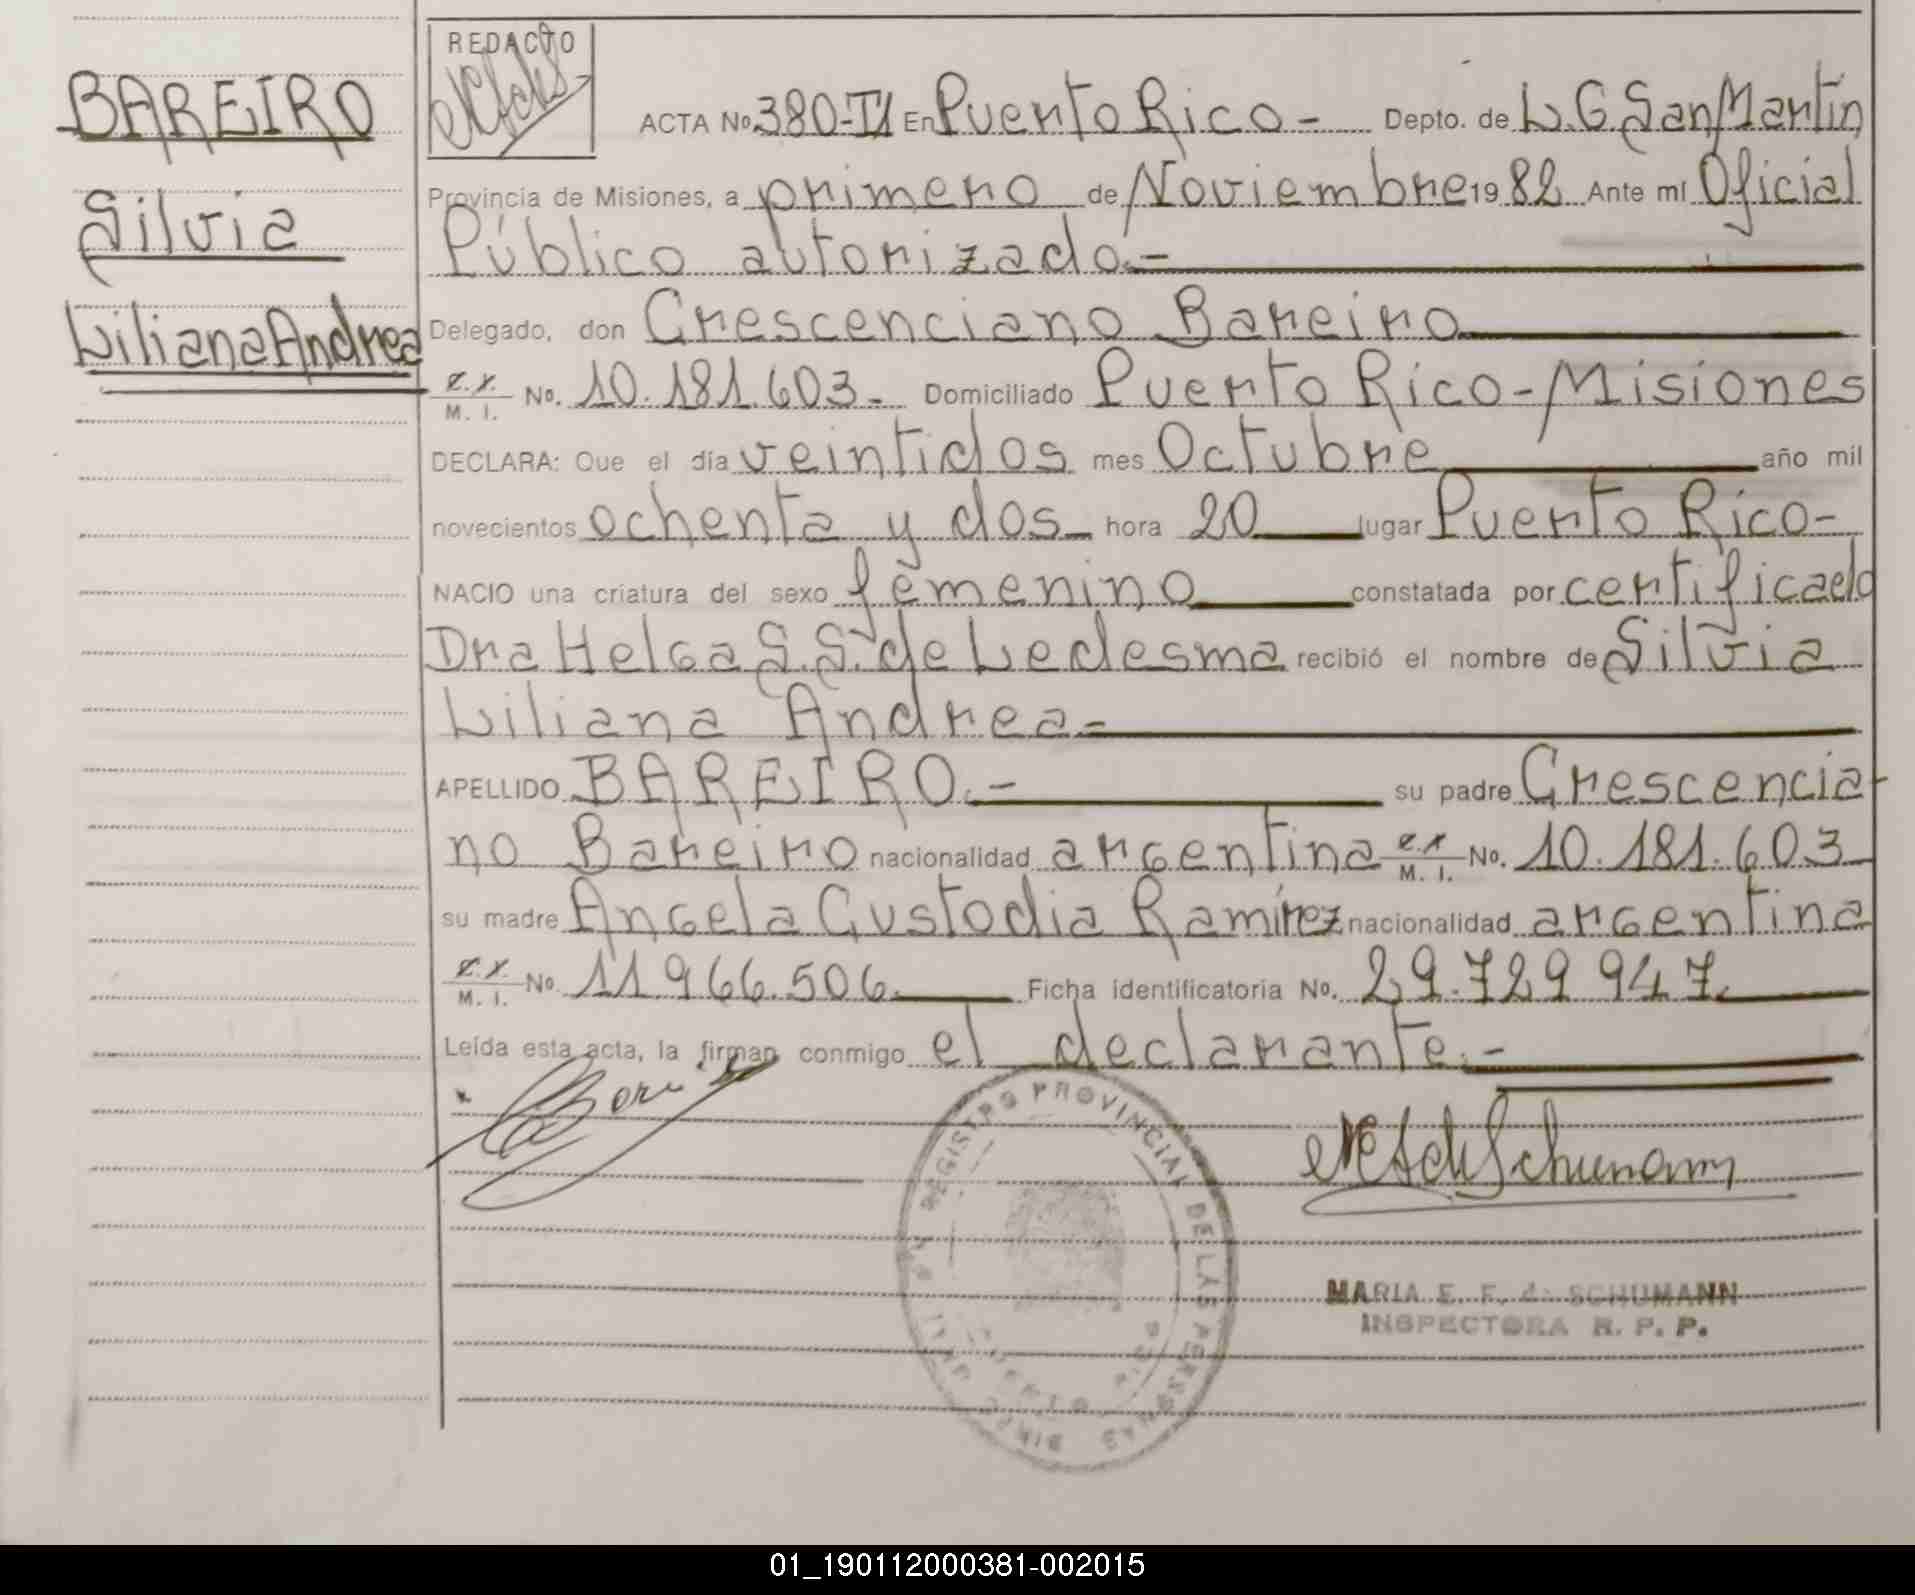 BAREIRO
Silvia
Liliana Andrea
REDACTO
ACTA No. 380-TI En Puerto Rico - Depto. de L.G. San Martín
Provincia de Misiones, a primero de Noviembre 1982 Ante mí Oficial
Público autorizado.-
Delegado, don Crescenciano Bareiro
M. I. No. 10.181.603.- Domiciliado Puerto Rico - Misiones
DECLARA: Que el día veintidos mes Octubre año mil
novecientos ochenta y dos hora 20 lugar Puerto Rico-
NACIO una criatura del sexo femenino constatada por certificado
Dra Helga S. S. de Ledesma recibió el nombre de Silvia
Liliana Andrea-
APELLIDO BAREIRO.- su padre Crescencia-
no Bareiro nacionalidad argentina M. I. No. 10.181.603
su madre Angela Custodia Ramírez nacionalidad argentina
M. I. No 11.966.506. Ficha identificatoria No. 29.729.947.
Leída esta acta, la firman conmigo el declarante.-
Schumann
REGISTRO PROVINCIAL DE LAS PERSONAS
PUERTO RICO
MARIA E. F. de SCHUMANN
INSPECTORA R. P. P.
01_190112000381-002015